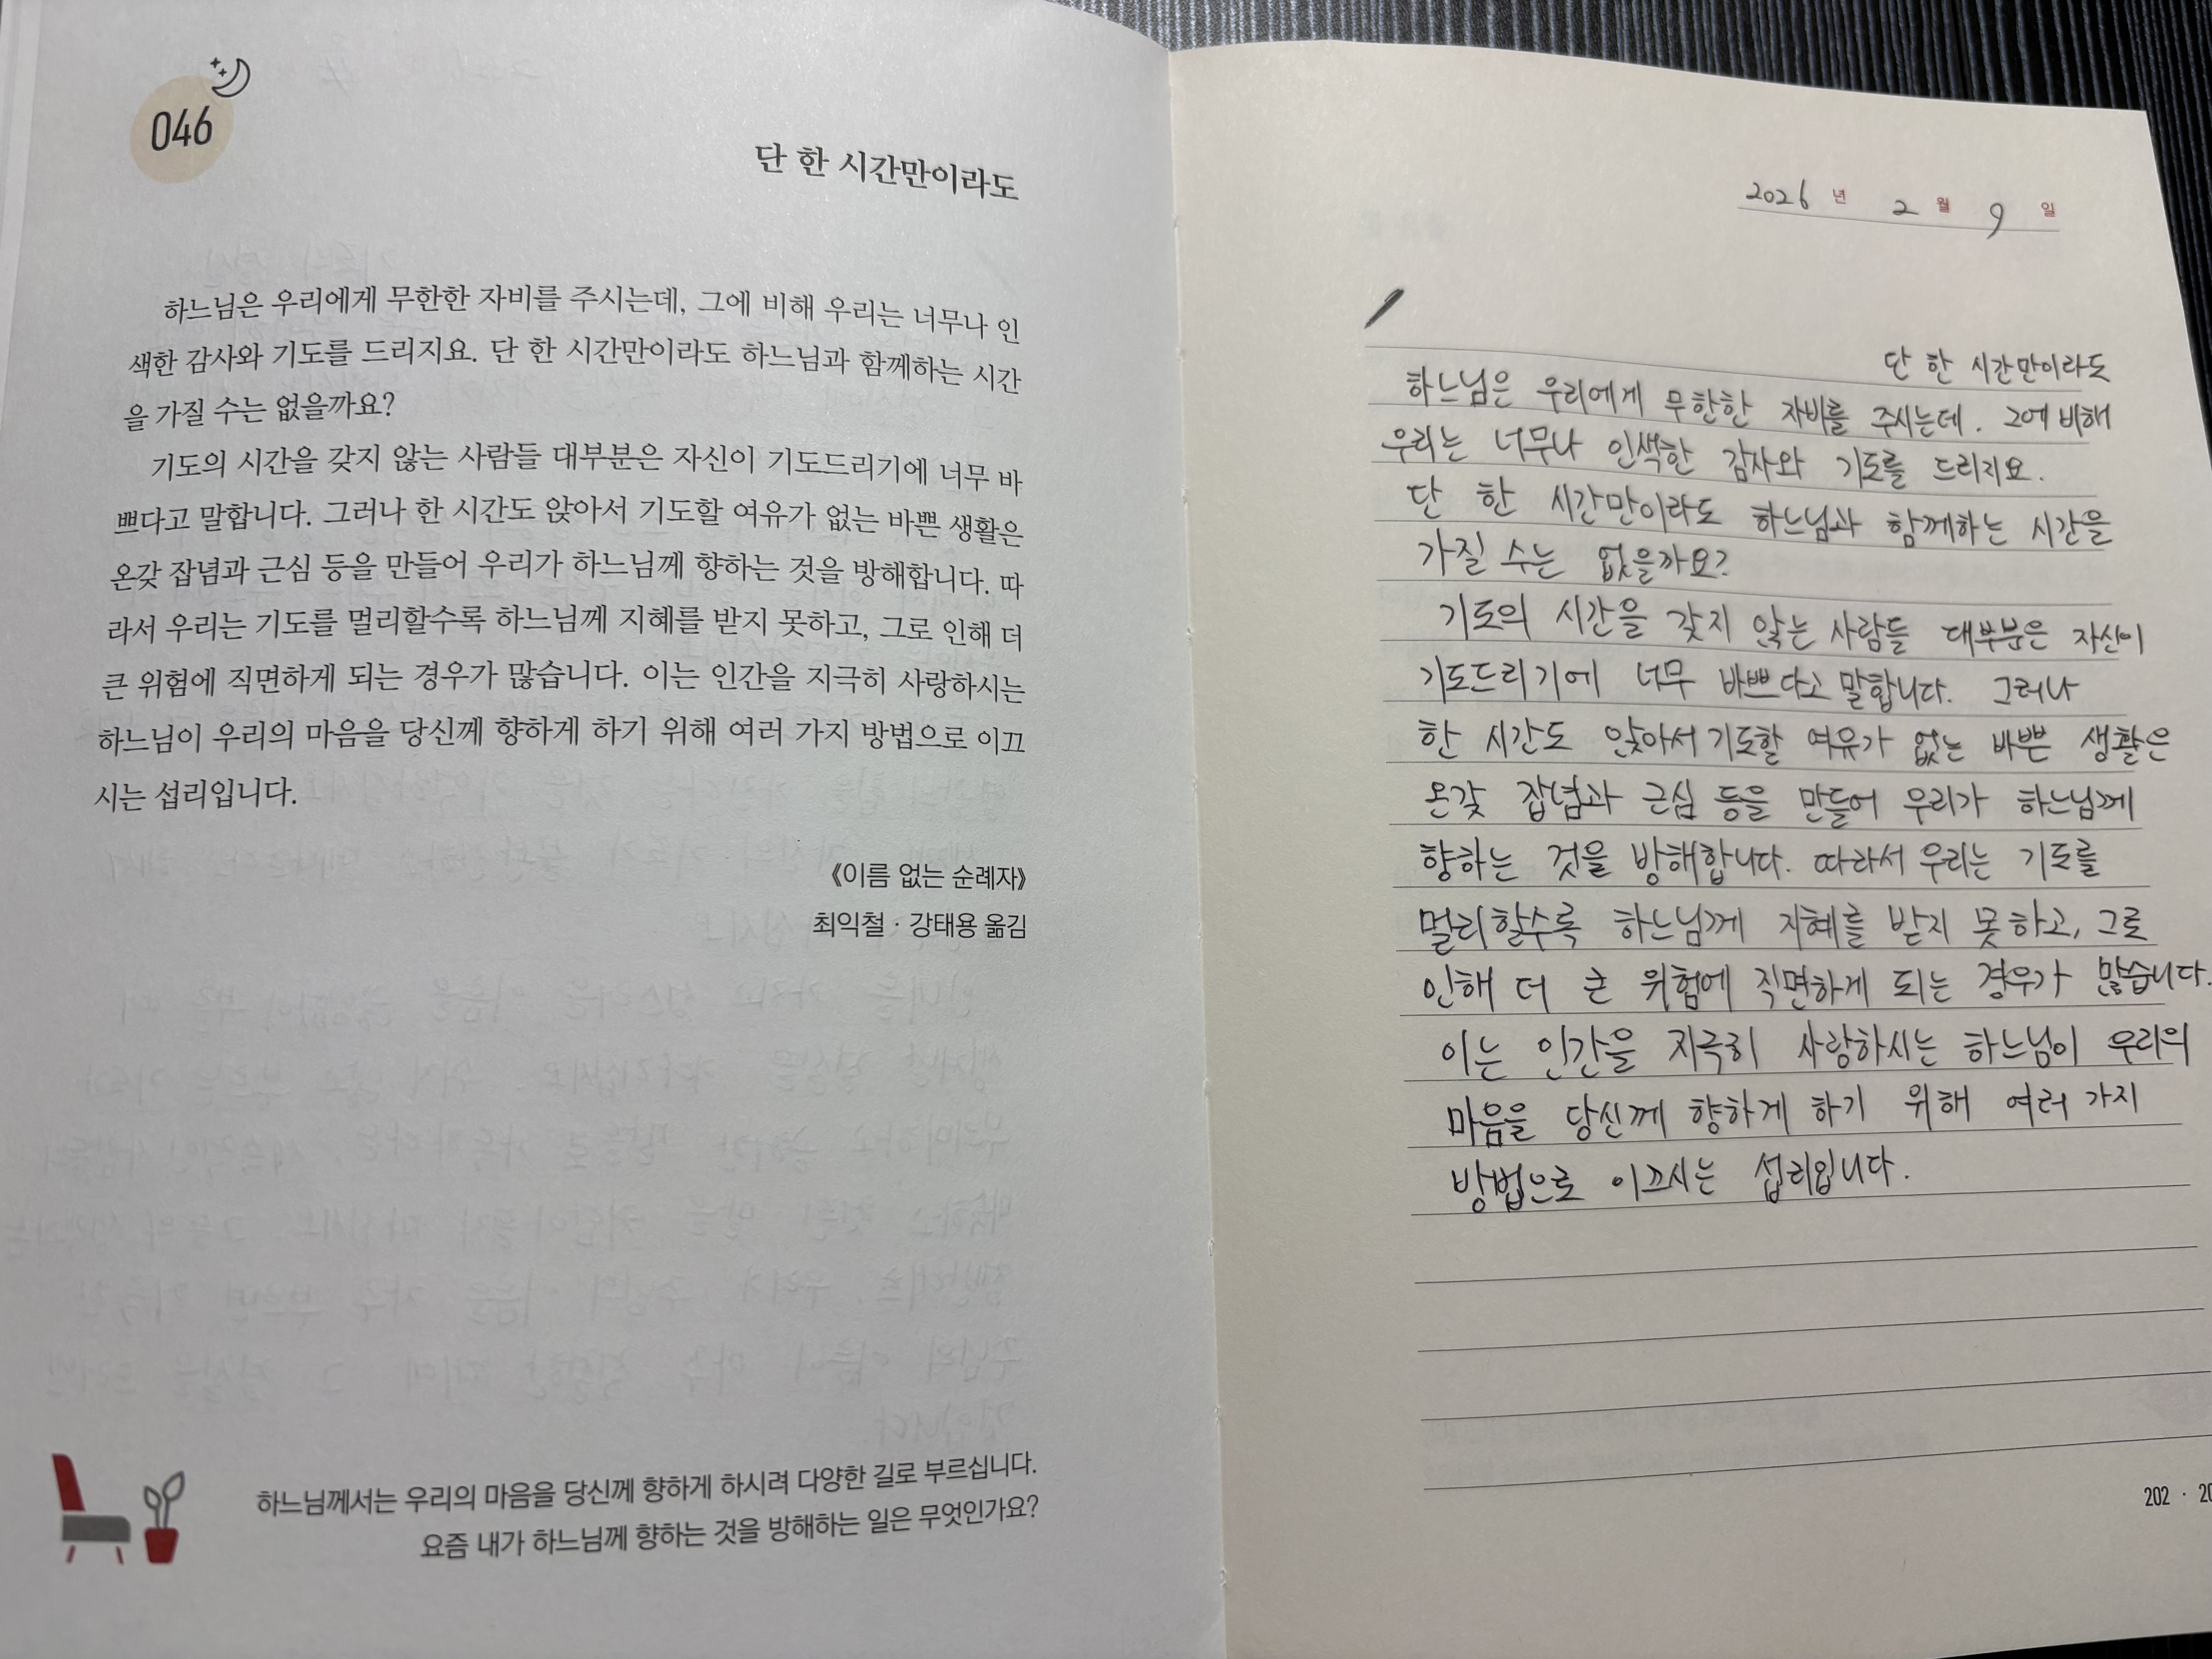 046
단 한 시간만이라도
하느님은 우리에게 무한한 자비를 주시는데, 그에 비해 우리는 너무나 인
색한 감사와 기도를 드리지요. 단 한 시간만이라도 하느님과 함께하는 시간
을 가질 수는 없을까요?
기도의 시간을 갖지 않는 사람들 대부분은 자신이 기도드리기에 너무 바
쁘다고 말합니다. 그러나 한 시간도 앉아서 기도할 여유가 없는 바쁜 생활은
온갖 잡념과 근심 등을 만들어 우리가 하느님께 향하는 것을 방해합니다. 따
라서 우리는 기도를 멀리할수록 하느님께 지혜를 받지 못하고, 그로 인해 더
큰 위험에 직면하게 되는 경우가 많습니다. 이는 인간을 지극히 사랑하시는
하느님이 우리의 마음을 당신께 향하게 하기 위해 여러 가지 방법으로 이끄
시는 섭리입니다.
《이름 없는 순례자》
최익철 · 강태용 옮김
하느님께서는 우리의 마음을 당신께 향하게 하시려 다양한 길로 부르십니다.
요즘 내가 하느님께 향하는 것을 방해하는 일은 무엇인가요?
2026 년 2 월 9 일
단 한 시간만이라도
하느님은 우리에게 무한한 자비를 주시는데. 그에 비해
우리는 너무나 인색한 감사와 기도를 드리지요.
단 한 시간만이라도 하느님과 함께하는 시간을
가질 수는 없을까요?
기도의 시간을 갖지 않는 사람들 대부분은 자신이
기도드리기에 너무 바쁘다고 말합니다. 그러나
한 시간도 앉아서 기도할 여유가 없는 바쁜 생활은
온갖 잡념과 근심 등을 만들어 우리가 하느님께
향하는 것을 방해합니다. 따라서 우리는 기도를
멀리할수록 하느님께 지혜를 받지 못하고, 그로
인해 더 큰 위험에 직면하게 되는 경우가 많습니다.
이는 인간을 지극히 사랑하시는 하느님이 우리의
마음을 당신께 향하게 하기 위해 여러 가지
방법으로 이끄시는 섭리입니다.
202 ·